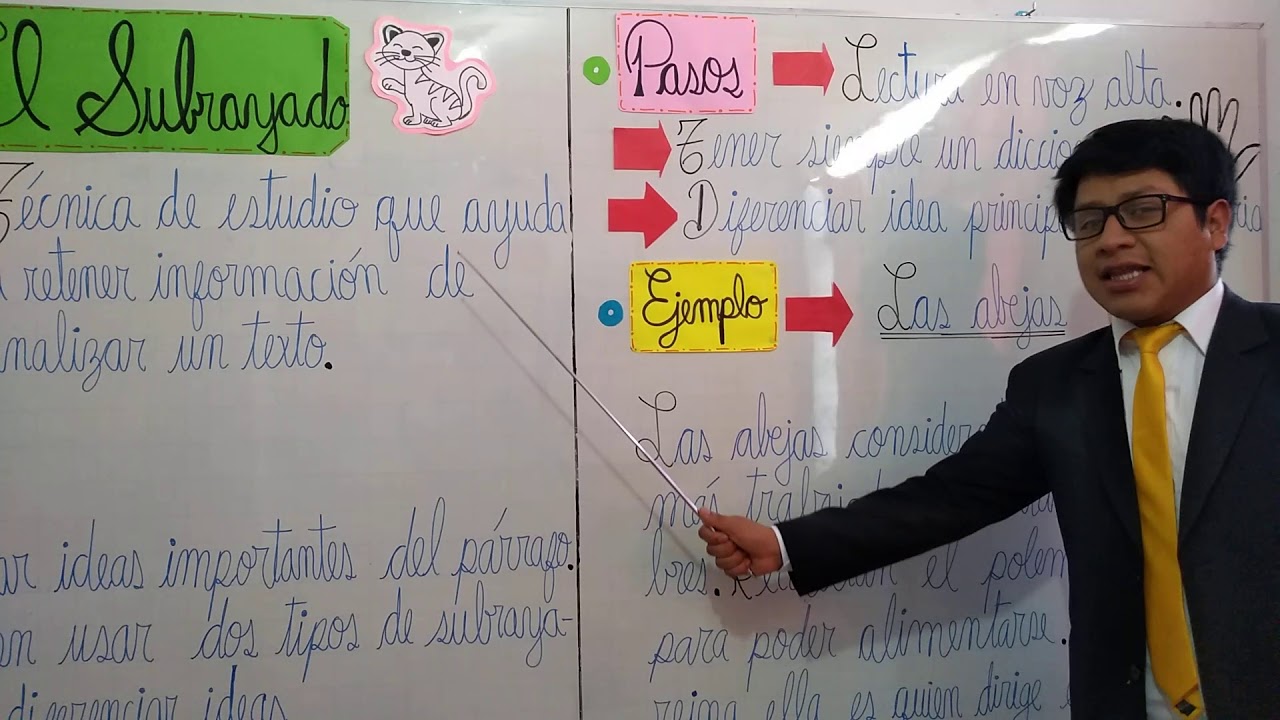 El Subrayado
Técnica de estudio que ayuda
a retener información de
analizar un texto.
ar ideas importantes del párrafo.
en usar dos tipos de subraya-
diferenciar ideas
Pasos
Lectura en voz alta.
Tener siempre un diccio
Diferenciar idea princip
Ejemplo
Las abejas
Las abejas consider
más trabaja
bres. el polen
para poder alimentarse.
reina ella es quien dirige